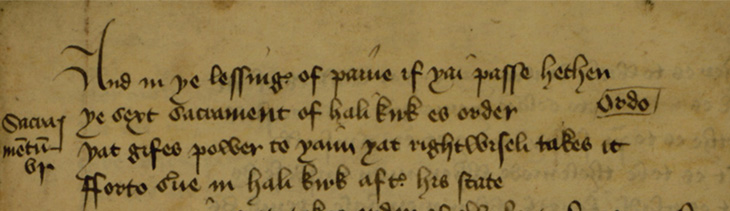 And in ye lessing of paine if yai passe hethen
Sacra
mentū
vj
ye sext sacrament of hali kirk es order
Ordo
yat gifes power to yaim yat rightwiseli takes it
fforto sue in hali kirk aft his state